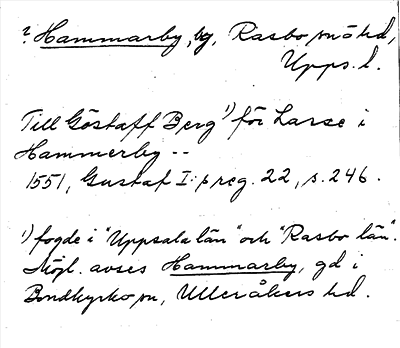 ? Hammarby, by, Rasbo sn o hd,
Upps. l.
Till Göstaff Berg¹) för Larse i
Hammerby --
1551, Gustaf I:s reg. 22, s. 246.
¹) fogde i "Uppsala län" och "Rasbo län".
Möjl. avses Hammarby, gd i
Bondkyrko sn, Ulleråkers hd.